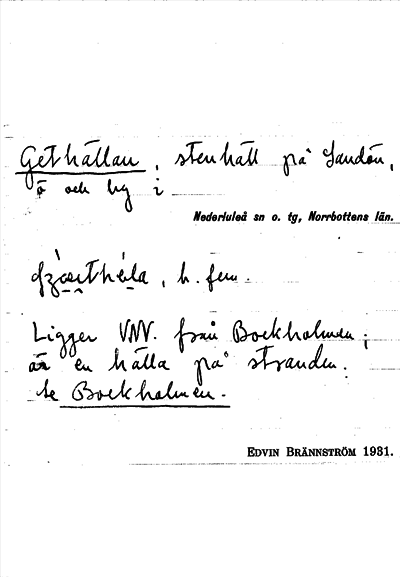 Gethällan, stenhäll på Sandön,
ö och by i
Nederluleå sn o. tg, Norrbottens län.
h. fem.
Ligger VNV. från Bockholmen;
är en hälla på stranden.
se Bockholmen.
EDVIN BRÄNNSTRÖM 1931.